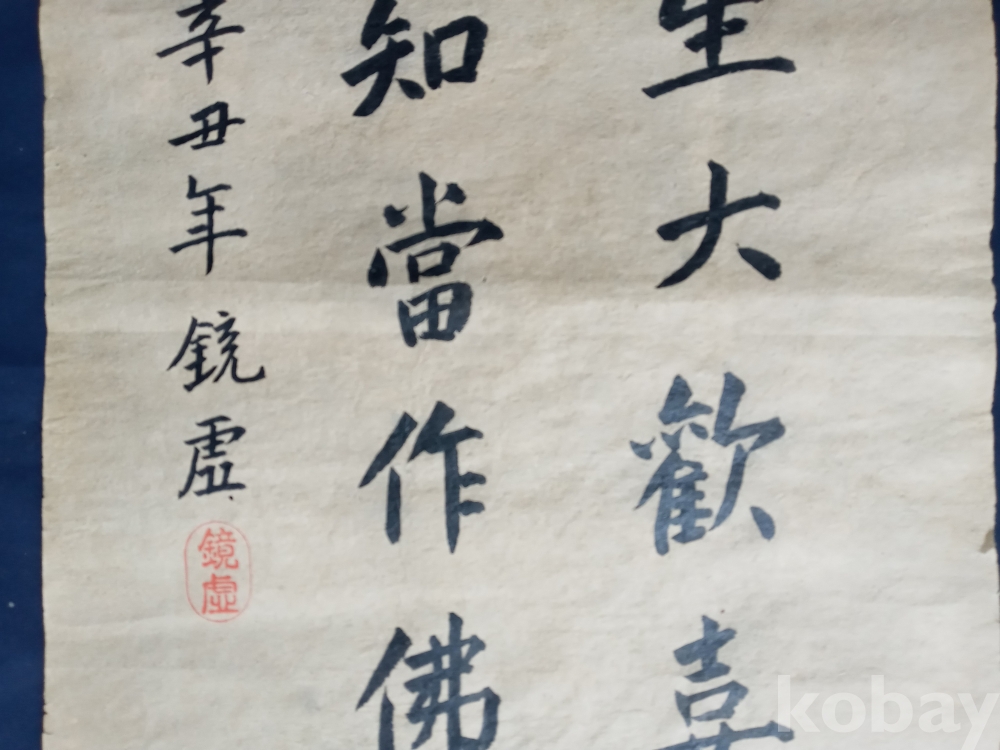 生大歡喜
知當作佛
辛丑年 鏡虛
鏡虛
kobay